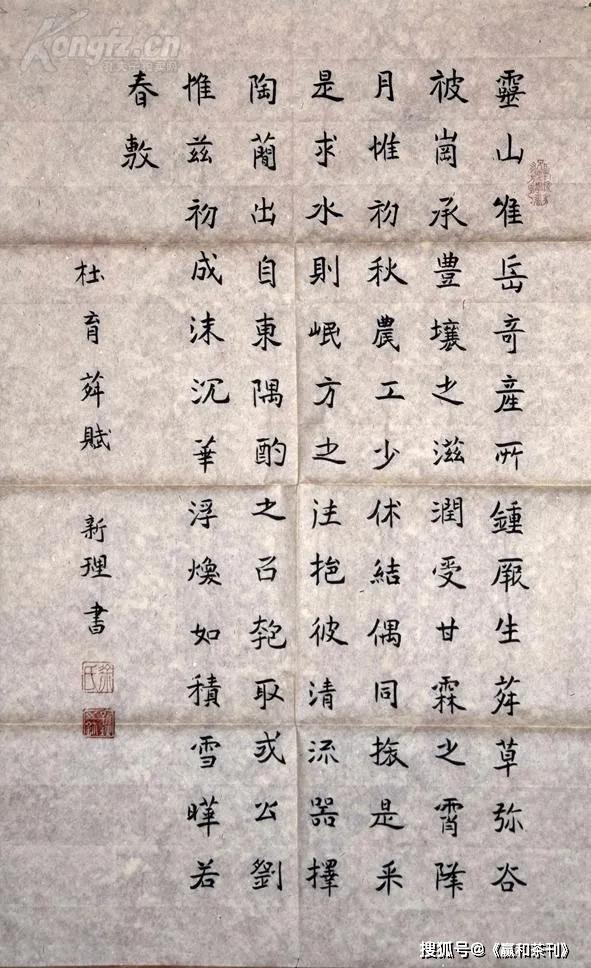 靈山惟岳奇產所鍾厥生荈草弥谷
被崗承豊壤之滋潤受甘霖之霄降
月惟初秋農工少休結偶同振是采
是求水則岷方之注挹彼清流器擇
陶蕳出自東隅酌之㠯匏取式公劉
惟茲初成沫沉華浮煥如積雪曄若
春敷
杜育荈賦 新理書
徐氏
Kongfz.cn
搜狐号@《赢和茶刊》